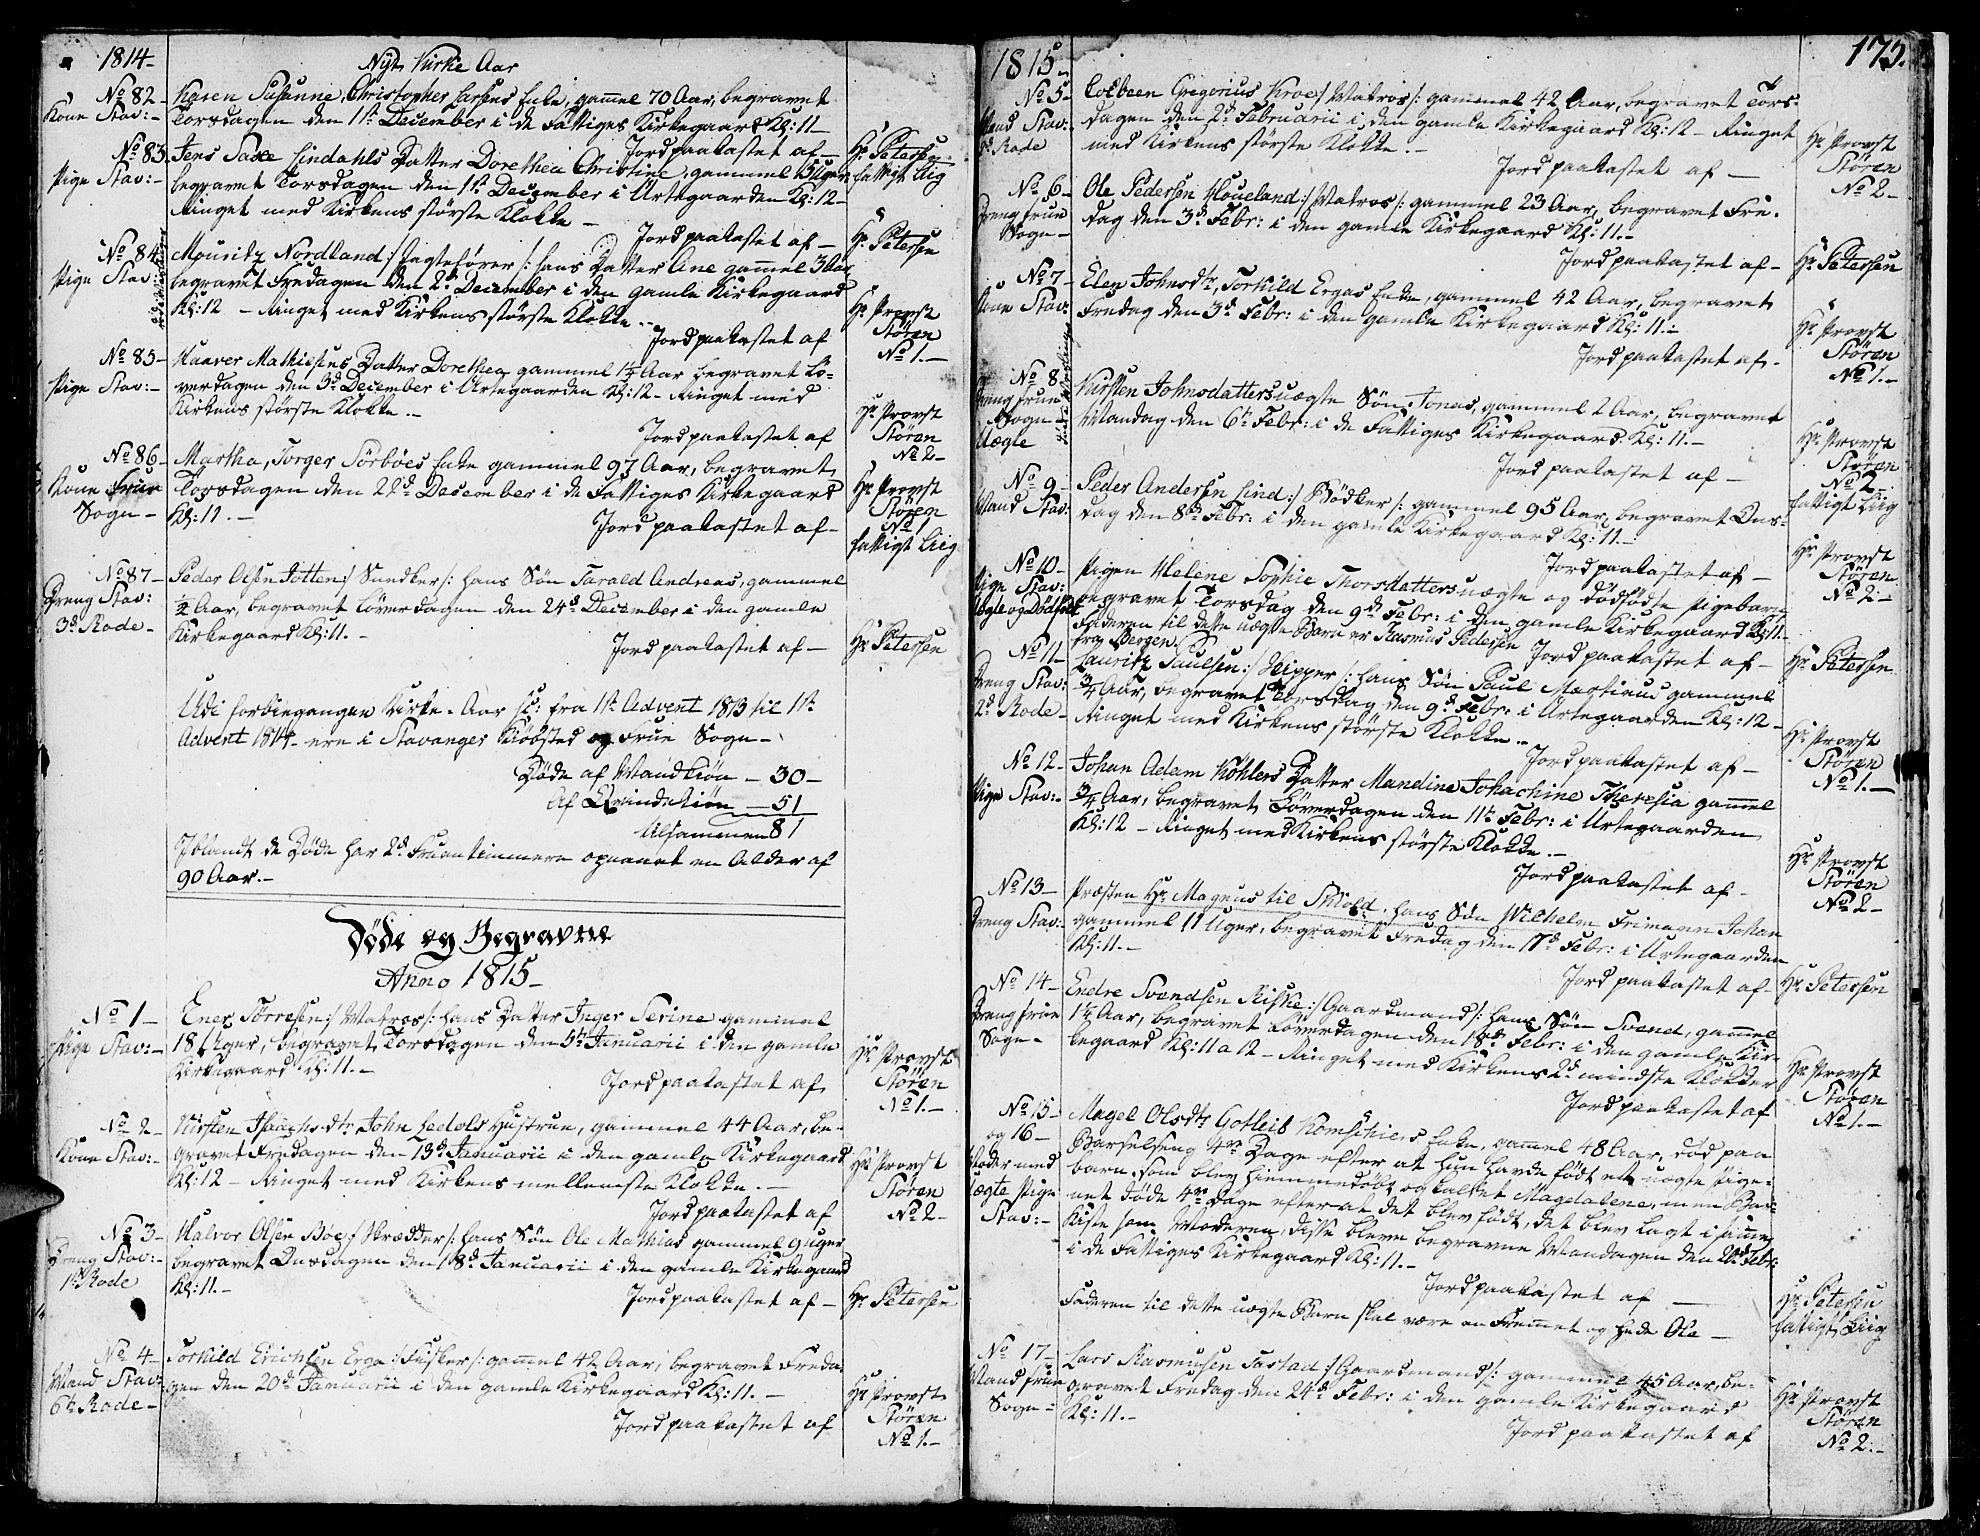 1814-
Nyt Kirke Aar
No 82- Karen Susanne, Christopher Larsens Enke, gamel 70 Aar, begravet
Kone Stav:- Torsdagen den 1st December i de Fattiges Kirkegaard Kl: 11-
Jord paakastet af - Hr Petersen
fattigt Liig
No 83 Jens Saxe Lindahls Datter Dorethea Christine, gammel Uger
Pige Stav:- begravet Torsdagen den 1st December i Urtegaarden Kl: 12-
Ringet med Kirkens største Klokke -
Jord paakastet af - Hr Petersen
No 84 Mouritz Nordland :/ /: hans Datter Ane gamel 3 Aar
Pige Stav: begravet Fredagen den 2d December i den gamle Kirkegaard
Kl: 12 - Ringet med Kirkens største Klokke -
Jord paakastet af
Hr Provst
Støren
No 1.-
No 85- Haaver Mathiesens Datter Dorethea gammel 1¼ Aar begravet Lø-
Pige Stav:- verdagen den 3d December i Urtegaarden Kl: 12- Ringet med
Kirkens største Klokke -
Jord paakastet af
Hr Provst
Støren
No 2-
No 86- Martha, Torger Sörböes Enke gammel 97 Aar, begravet
Kone Frue Torsdagen den 22d December i de Fattiges Kirkegaard
Sogn - Kl: 11. -
Jord paakastet af -
Hr Provst
Støren
No 1
fattigt Liig
No 87- Peder Olsen Jotten :/ Snedker /: hans Søn Tarald Andreas, gammel
Dreng Stav: ½ Aar, begravet Løverdagen den 24d December i den gamle
3d Rode - Kirkegaard Kl: 11. -
Jord paakastet af - Hr Petersen
Udi forbiegangen Kirke-Aar fra 1st Advent 1813 til 1st
Advent 1814- ere i Stavanger Kiöbsted og Frue Sogn -
Døde af Mandkiøn - 30 -
Af Qvindekiøn - 51
tilsammen 81
Iblandt de Døde har 2d Fruentimmere opnaaet en Alder af
90 Aar. -
Døde og Begravne
Anno 1815-
No 1- Ener Torresen :/ Matros /: hans Datter Inger Serine gammel
Pige Stav:- 18 Uger, begravet Torsdagen den 5t Januarii i den gamle
Kirkegaard Kl: 11. -
Jord paakastet af
Hr Provst
Støren
No 1.-
No 2- Kirsten Isaachs dtr John Ledels Hustrue, gammel 44 Aar, be-
Kone Stav:- gravet Fredagen den 13d Januarii i den gamle Kirkegaard
Kl: 12 - Ringet med Kirkens mellemste Klokke. -
Jord paakastet af
Hr Provst
Støren
No 2-
No 3- Halvor Olsen Boe :/ Skrædder /: hans Søn Ole Mathias gammel 9 uger
Dreng Stav:- begravet Onsdagen den 18d Januarii i den gamle Kirkegaard
1st Rode Kl: 11. -
Jord paakastet af - Hr Petersen
No 4- Torkild Erichsen Erga :/ Fisker /: gamel 42 Aar, begravet Freda-
Mand Stav: gen den 20d Januarii i den gamle Kirkegaard Kl: 11. -
6t Rode - Jord paakastet af
Hr Provst
Støren
No 1.-
1815- 173.
No 5- Colbeen Gregorius Kroes :/ Matros /: gammel 42 Aar, begravet Tors-
Mand Stav: dagen den 2d Februarii i den gamle Kirkegaard Kl: 12 - Ringet
Rode med Kirkens største Klokke. -
Jord paakastet af -
Hr Provst
Støren
No 2-
No 6- Ole Pedersen Houeland :/ Matros /: gammel 23 Aar, begravet Fre-
Dreng Frue dag den 3d Febr: i den gamle Kirkegaard Kl: 11. -
Sogn - Jord paakastet af - Hr Petersen
No 7- Elen Johnsdtr, Torkild Ergas Enke, gammel 42 Aar, begravet
Kone Stav: Fredag den 3d Febr: i den gamle Kirkegaard Kl: 11. -
Jord paakastet af -
Hr Provst
Støren
No 1.-
No 8 Kirsten Johnsdatters uægte Søn, Jonas, gammel 2 Aar, begravet
Dreng Frue Mandag den 6t Febr: i de Fattiges Kirkegaard Kl: 11. -
Sogn -
Uægte
Jord paakastet af -
Hr Provst
Støren
No 2-
fattigt Liig
No 9- Peder Andersen Lind :/ Bödker /: gammel 95 Aar, begravet Ons-
Mand Stav: dag den 8de Febr: i den gamle Kirkegaard Kl: 11. -
Jord paakastet af -
Hr Provst
Støren
No 2-
No 10- Pigen Helene Sophie Thorsdatters uægte og dødfødte Pigebarn
Pige Stav: begravet Torsdag den 9d Febr: i den gamle Kirkegaard Kl: 11-
Uægte og Dødfødt Faderen til dette uægte Barn er Rasmus Pedersen
fra Bergen. Jord paakastet af - Hr Petersen
No 11- Lauritz Paulsen :/ Skipper /: hans Søn Paul Martinus gammel
Dreng Stav: ¾ Aar, begravet Torsdag den 9d Febr: i Urtegaarden Kl: 12 -
2d Rode - Ringet med Kirkens største Klokke -
Jord paakastet af -
Hr Provst
Støren
No 1.-
No 12- Johan Adam Köhlers Datter Mandine Johachine Theresia gamel
Pige Stav:- ¾ Aar, begravet Løverdagen den 11te Febr: i Urtegaarden
Kl: 12 - Ringet med Kirkens største Klokke. -
Jord paakastet af -
Hr Provst
Støren
No 2-
No 13- Præsten Hr Magnus til Skiold, hans Søn Wilhelm Frimann Johan
Dreng Stav: gammel 11 Uger, begravet Fredag den 17d Febr: i Urtegaarden
Kl: 11. -
Jord paakastet af - Hr Petersen
No 14- Endre Svendsen Riske :/ Gaardmand /: hans Søn Svend, gamel
Dreng Frue 1¼ Aar, begravet Løverdagen den 18d Febr: i den gamle Kir-
Sogn - kegaard Kl: 11 a 12 - Ringet med Kirkens 2d mindste Klokker
Jord paakastet af
Hr Provst
Støren
No 1.-
No 15- Magel Olsdtr Gotleib Komschiers Enke, gamel 48 Aar, død paa
og 16- Barselseng 4re Dage efter at hun havde født et uægte Pige-
Moder med barn, som blev hiemmedøbt og kaldet Magdalene, men Bar-
uægte Pige net døde 4re Dage efter at det blev født, det blev lagt i samme
Stav:- Kiste som Moderen, disse bleve begravne Mandagen den 20d Febr:
i de Fattiges Kirkegaard Kl: 11. -
Jord paakastet af - Hr Petersen
Faderen til dette uægte Barn skal være en Fremmet og hede Ole - fattigt Liig
No 17- Lars Rasmusen Tastad :/ Gaardmand /: gammel 45 Aar, be-
Mand Frue gravet Fredag den 24d Febr: i den gamle Kirkegaard
Sogn - Kl: 11. -
Jord paakastet af
Hr Provst
Støren
No 2.-